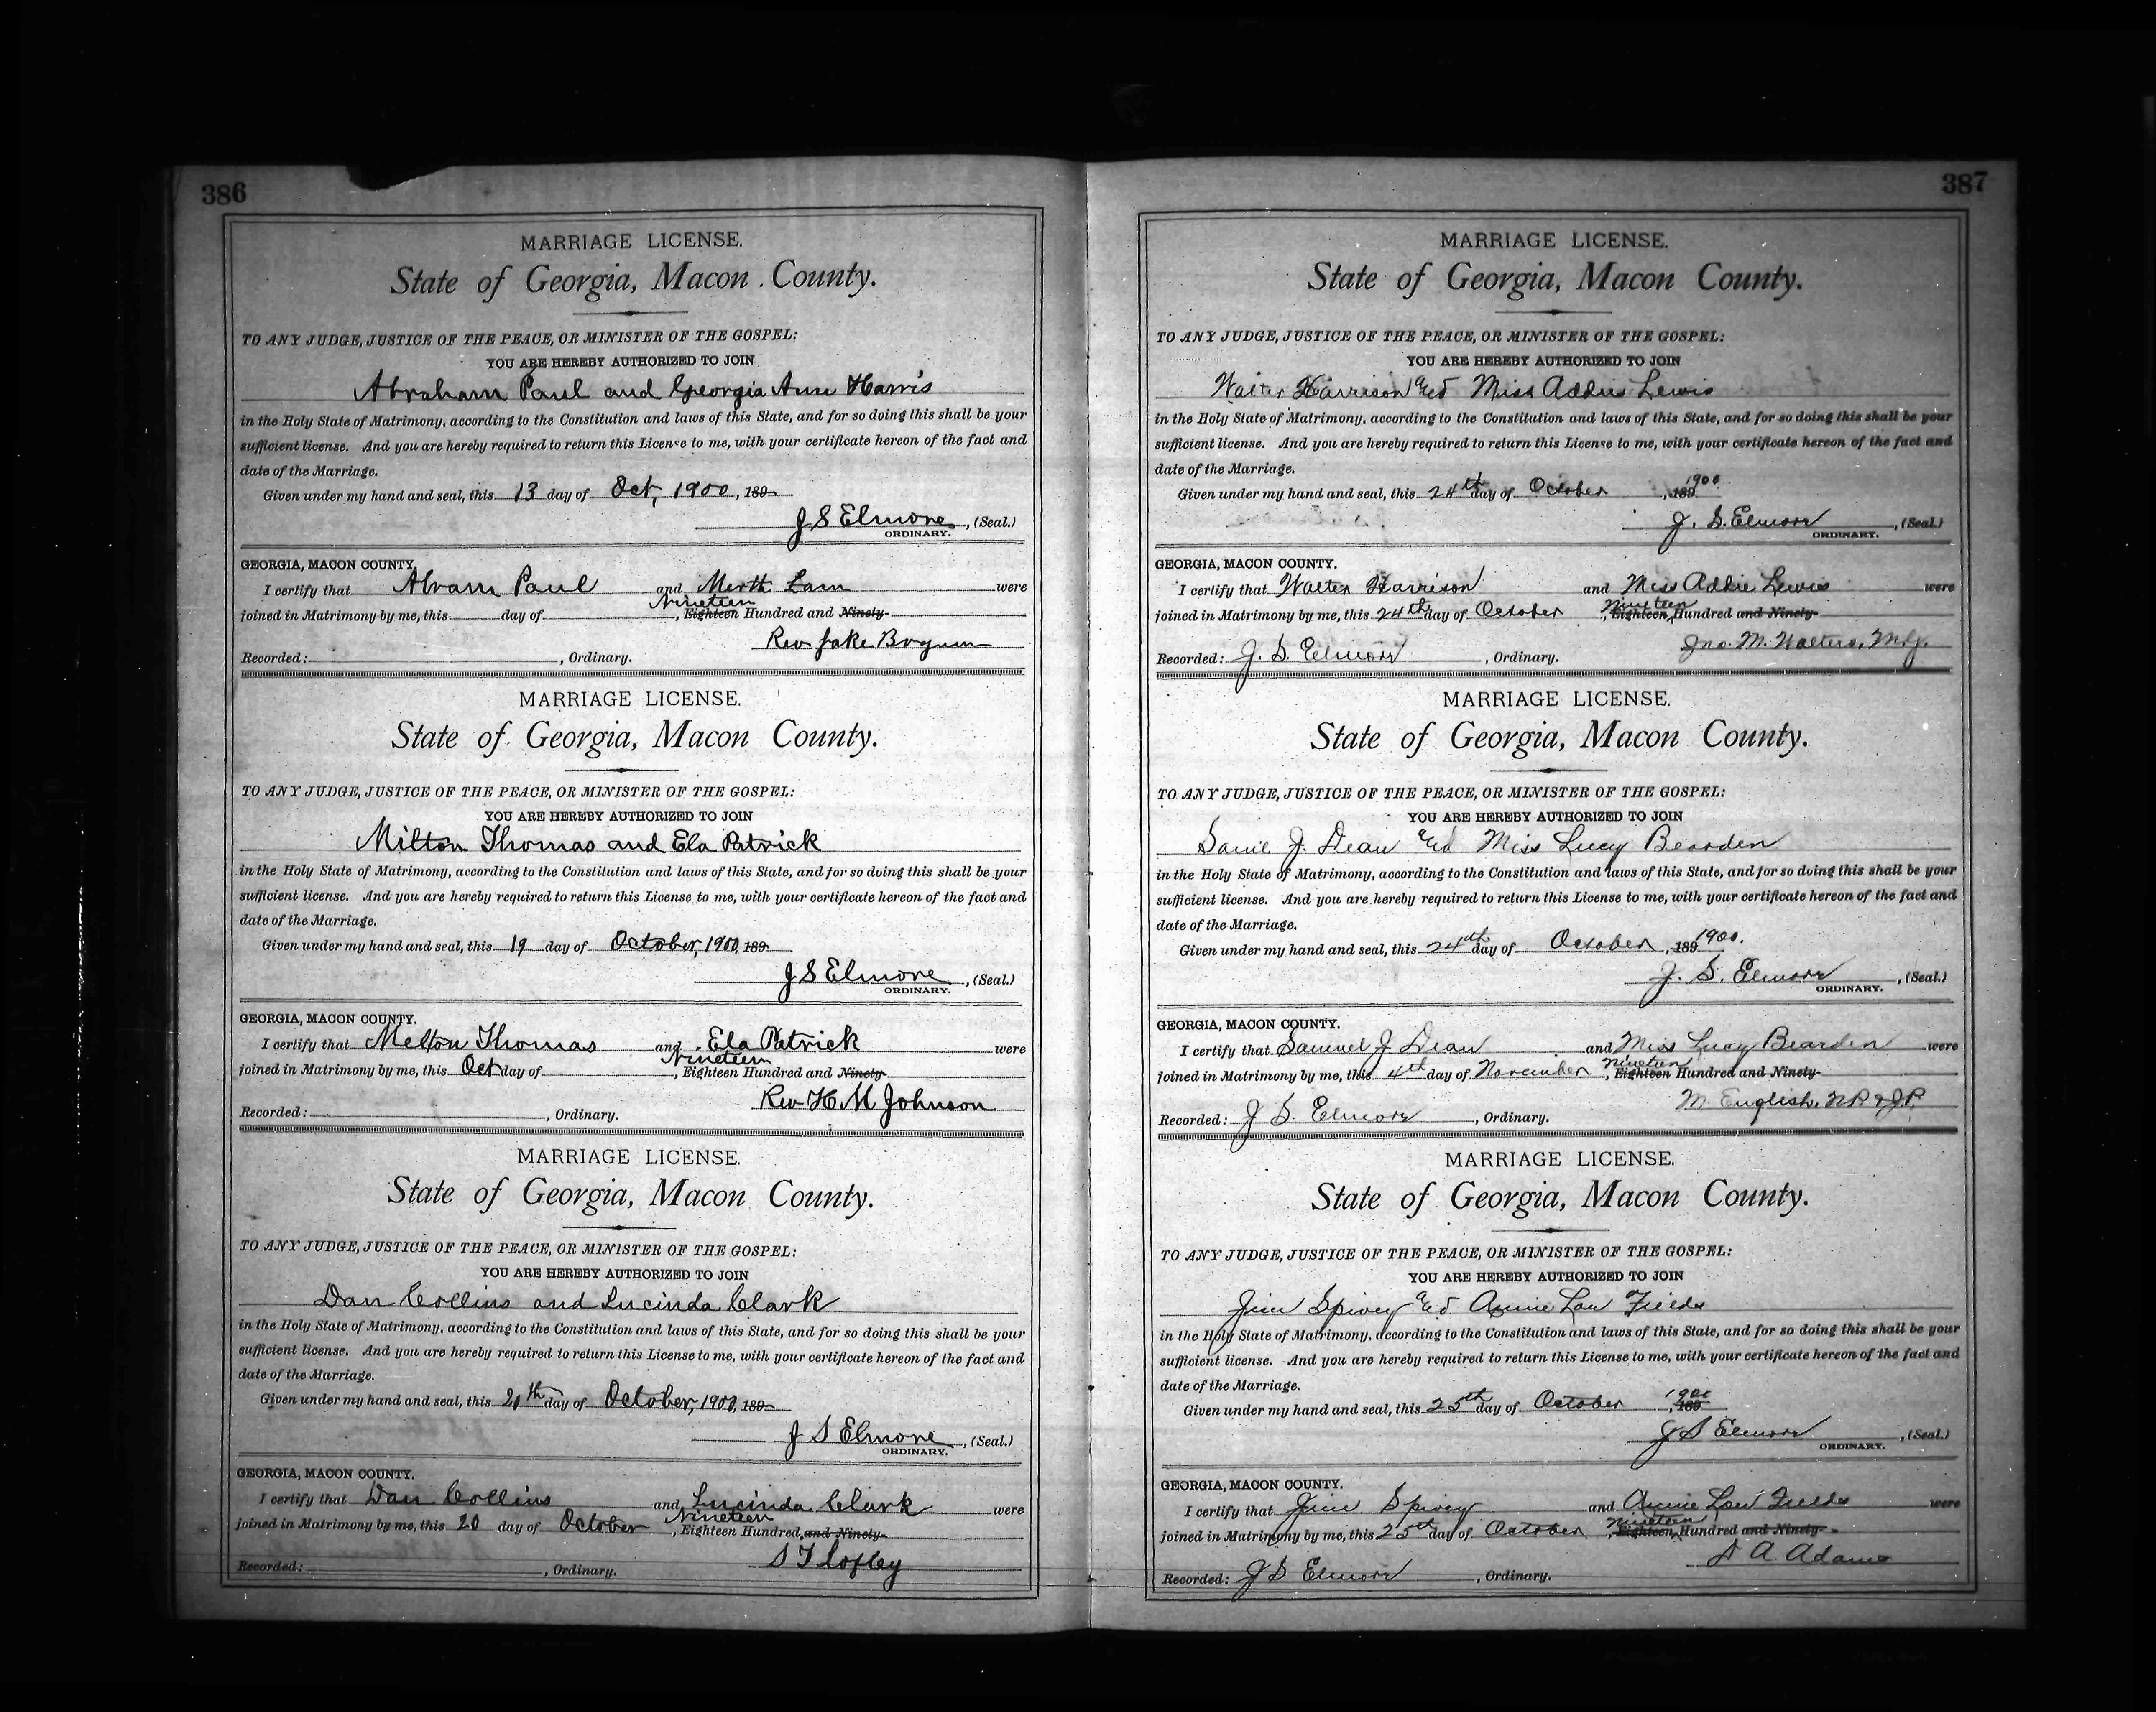 386
MARRIAGE LICENSE.
State of Georgia, Macon County.
TO ANY JUDGE, JUSTICE OF THE PEACE, OR MINISTER OF THE GOSPEL:
YOU ARE HEREBY AUTHORIZED TO JOIN
Abraham Paul and Georgia Ann Harris
in the Holy State of Matrimony, according to the Constitution and laws of this State, and for so doing this shall be your
sufficient license. And you are hereby required to return this License to me, with your certificate hereon of the fact and
date of the Marriage.
Given under my hand and seal, this 13 day of Oct, 1900, 189
J S Elmore, (Seal.)
ORDINARY.
GEORGIA, MACON COUNTY.
I certify that Abram Paul and were
Nineteen
joined in Matrimony by me, this day of , Eighteen Hundred and Ninety-
Rev Jake
Recorded: , Ordinary.
MARRIAGE LICENSE.
State of Georgia, Macon County.
TO ANY JUDGE, JUSTICE OF THE PEACE, OR MINISTER OF THE GOSPEL:
YOU ARE HEREBY AUTHORIZED TO JOIN
Milton Thomas and Ela Patrick
in the Holy State of Matrimony, according to the Constitution and laws of this State, and for so doing this shall be your
sufficient license. And you are hereby required to return this License to me, with your certificate hereon of the fact and
date of the Marriage.
Given under my hand and seal, this 19 day of October, 1900, 189
J S Elmore, (Seal.)
ORDINARY.
GEORGIA, MACON COUNTY.
I certify that Melton Thomas and Ela Patrick were
Nineteen
joined in Matrimony by me, this Oct day of , Eighteen Hundred and Ninety-
Rev H. M Johnson
Recorded: , Ordinary.
MARRIAGE LICENSE.
State of Georgia, Macon County.
TO ANY JUDGE, JUSTICE OF THE PEACE, OR MINISTER OF THE GOSPEL:
YOU ARE HEREBY AUTHORIZED TO JOIN
Dan Collins and Lucinda Clark
in the Holy State of Matrimony, according to the Constitution and laws of this State, and for so doing this shall be your
sufficient license. And you are hereby required to return this License to me, with your certificate hereon of the fact and
date of the Marriage.
Given under my hand and seal, this day of October, 1900, 189
J S Elmore, (Seal.)
ORDINARY.
GEORGIA, MACON COUNTY.
I certify that Dan Collins and Lucinda Clark were
Nineteen
joined in Matrimony by me, this 20 day of October , Eighteen Hundred and Ninety-
S T Lofley
Recorded: , Ordinary.
387
MARRIAGE LICENSE.
State of Georgia, Macon County.
TO ANY JUDGE, JUSTICE OF THE PEACE, OR MINISTER OF THE GOSPEL:
YOU ARE HEREBY AUTHORIZED TO JOIN
Walter Harrison and Miss Addie Lewis
in the Holy State of Matrimony, according to the Constitution and laws of this State, and for so doing this shall be your
sufficient license. And you are hereby required to return this License to me, with your certificate hereon of the fact and
date of the Marriage.
Given under my hand and seal, this 24th day of October , 189 1900
J. S. Elmore, (Seal.)
ORDINARY.
GEORGIA, MACON COUNTY.
I certify that Walter Harrison and Miss Addie Lewis were
nineteen
joined in Matrimony by me, this 24th day of October , Eighteen Hundred and Ninety-
Jno. M. Walters, M.G.
Recorded: J. S. Elmore , Ordinary.
MARRIAGE LICENSE.
State of Georgia, Macon County.
TO ANY JUDGE, JUSTICE OF THE PEACE, OR MINISTER OF THE GOSPEL:
YOU ARE HEREBY AUTHORIZED TO JOIN
J. Dean and Miss Lucy Bearden
in the Holy State of Matrimony, according to the Constitution and laws of this State, and for so doing this shall be your
sufficient license. And you are hereby required to return this License to me, with your certificate hereon of the fact and
date of the Marriage.
Given under my hand and seal, this 24th day of October , 189 1900.
J. S. Elmore , (Seal.)
ORDINARY.
GEORGIA, MACON COUNTY.
I certify that Samuel J. Dean and Miss Lucy Bearden were
nineteen
joined in Matrimony by me, this 4th day of November , Eighteen Hundred and Ninety-
M. English, N.P. & J.P.
Recorded: J S. Elmore , Ordinary.
MARRIAGE LICENSE.
State of Georgia, Macon County.
TO ANY JUDGE, JUSTICE OF THE PEACE, OR MINISTER OF THE GOSPEL:
YOU ARE HEREBY AUTHORIZED TO JOIN
Jim Spivey and Annie Lou Fields
in the Holy State of Matrimony, according to the Constitution and laws of this State, and for so doing this shall be your
sufficient license. And you are hereby required to return this License to me, with your certificate hereon of the fact and
date of the Marriage.
Given under my hand and seal, this 25th day of October , 189 1900
J S Elmore , (Seal.)
ORDINARY.
GEORGIA, MACON COUNTY.
I certify that Jim Spivey and Annie Lou Fields were
nineteen
joined in Matrimony by me, this 25th day of October , Eighteen Hundred and Ninety-
A. Adams
Recorded: J S Elmore , Ordinary.